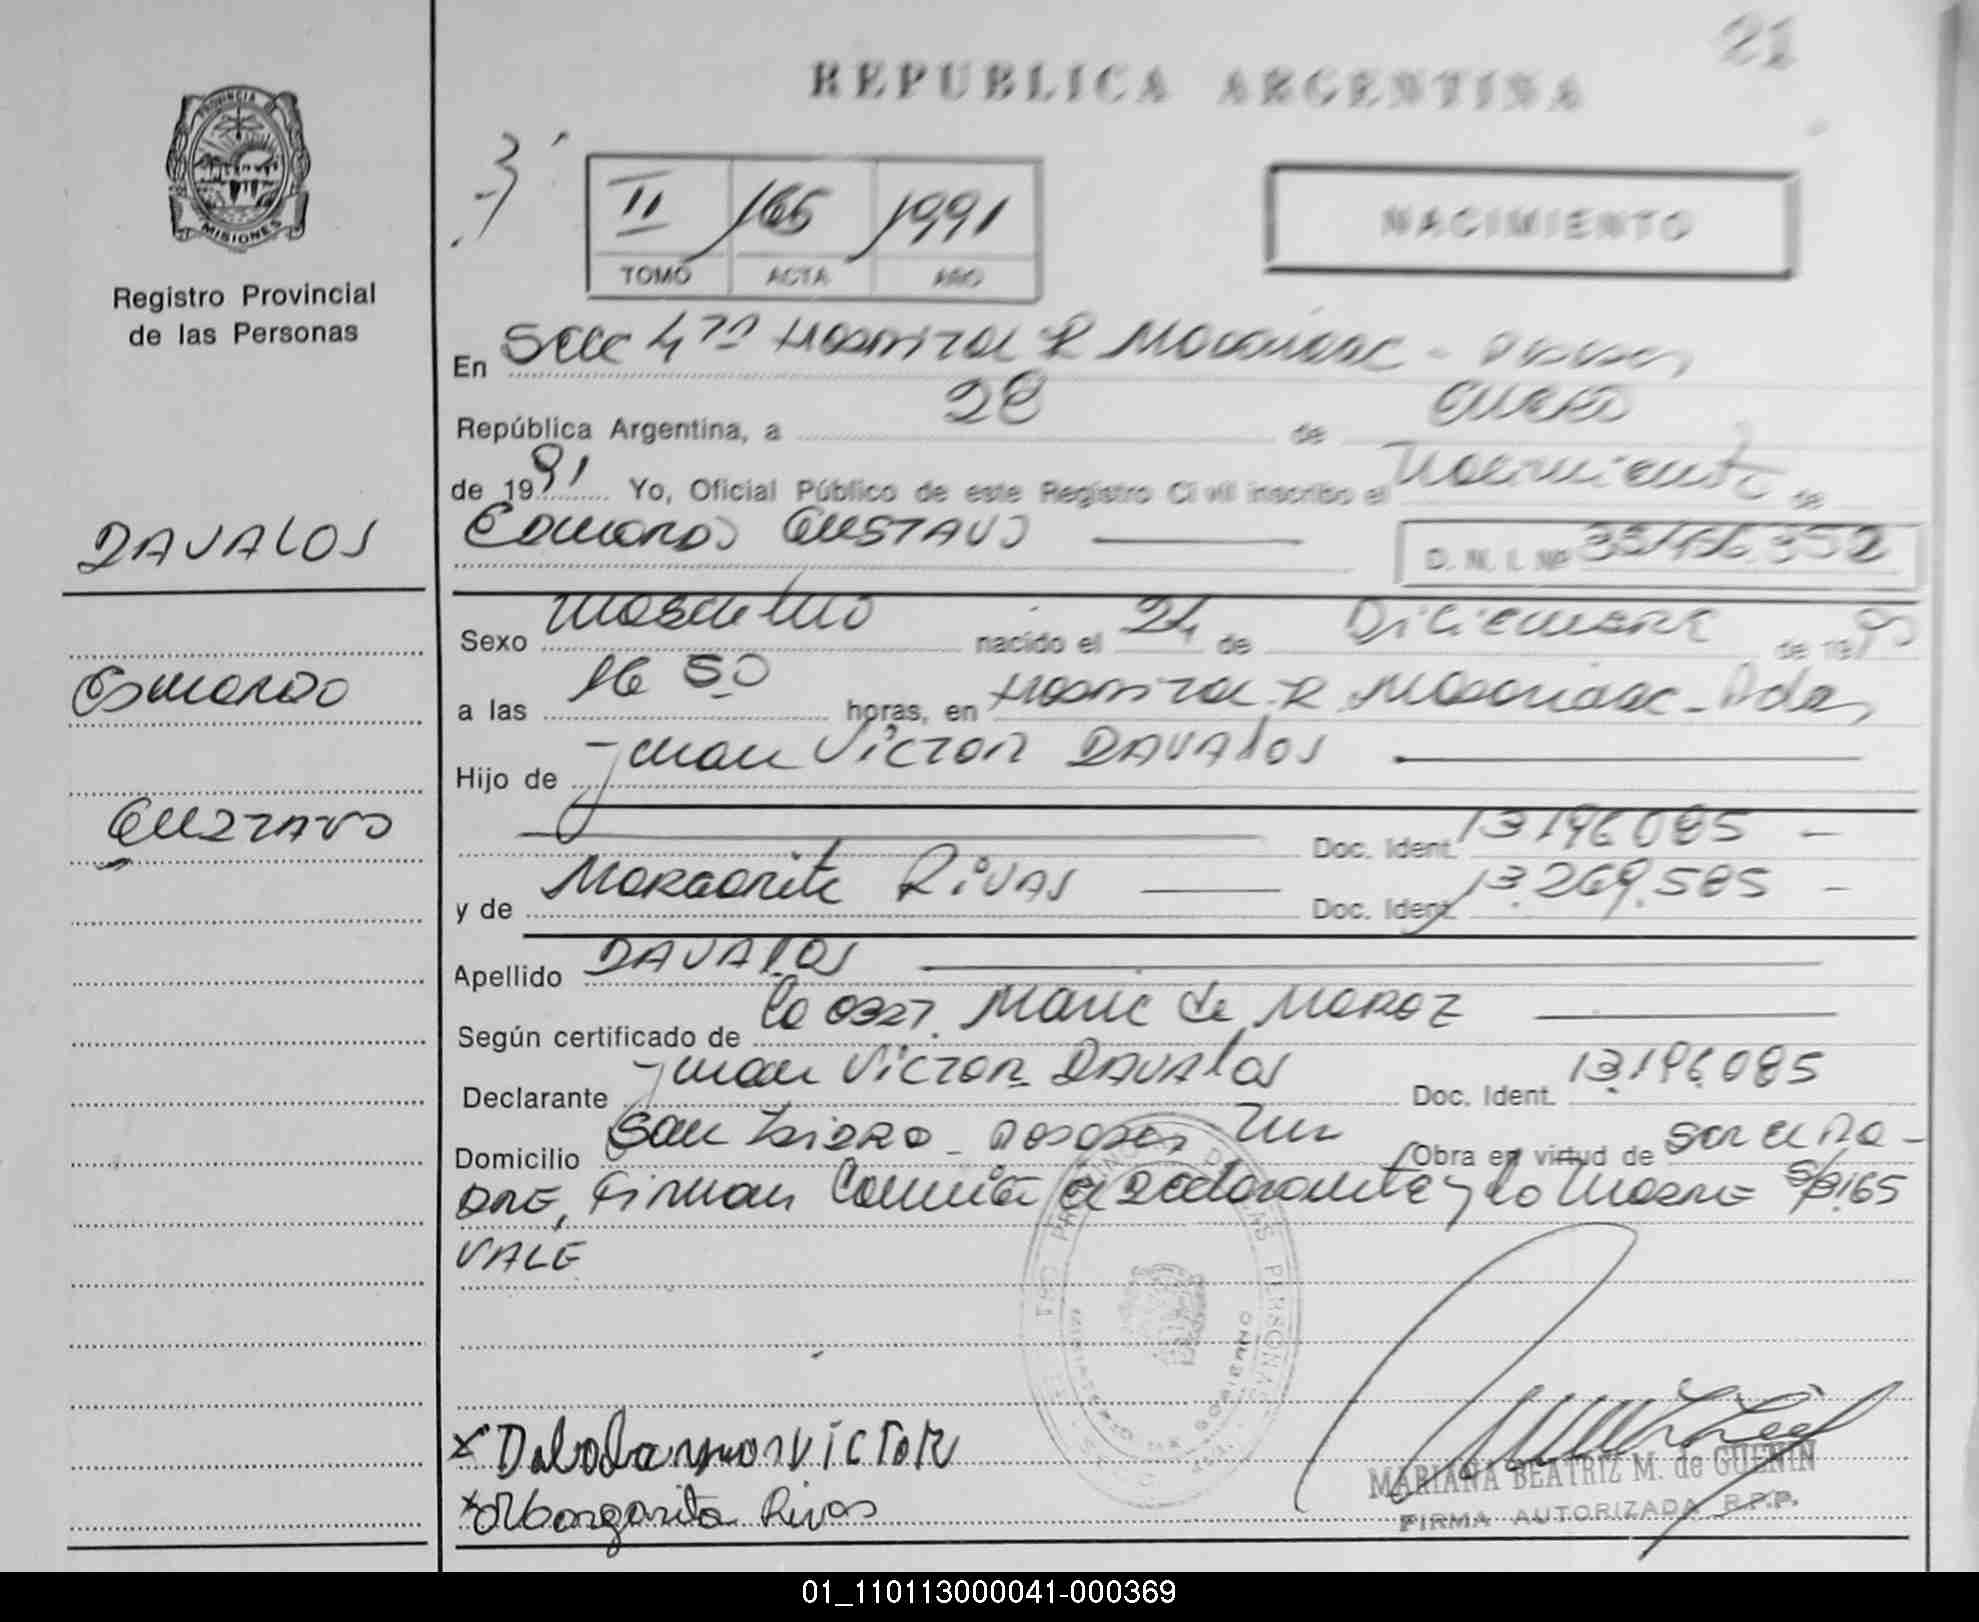 21
REPUBLICA ARGENTINA
PROVINCIA DE
MISIONES
Registro Provincial
de las Personas
II 165 1991
TOMO ACTA AÑO
NACIMIENTO
En Secc 4ta Hospital R Madariaga - Posadas
República Argentina, a 28 de enero
de 1991 Yo, Oficial Público de este Registro Civil inscribo el nacimiento de
DAVALOS
GUSTAVO
D. N. I. Nº 35.456.352
Sexo masculino nacido el 24 de Diciembre de 1990
a las 16 50 horas, en Hospital R Madariaga - Pdas,
Hijo de Juan Victor DAVALOS
GUSTAVO
Doc. Ident. 13196085 -
y de Margarita RIVAS Doc. Ident. 13.269.585 -
Apellido DAVALOS
Según certificado de la 0327. Marie de MOROZ
Declarante Juan Victor DAVALOS Doc. Ident. 13.196.085
Domicilio San Isidro - Posadas Mnes Obra en virtud de ser el PA-
DRE, Firman Conmigo el declarante y la madre S/R 165
VALE
x VICTOR
x Margarita Rivas
MARIANA BEATRIZ M. de GUENIN
FIRMA AUTORIZADA R.P.P.
01_110113000041-000369